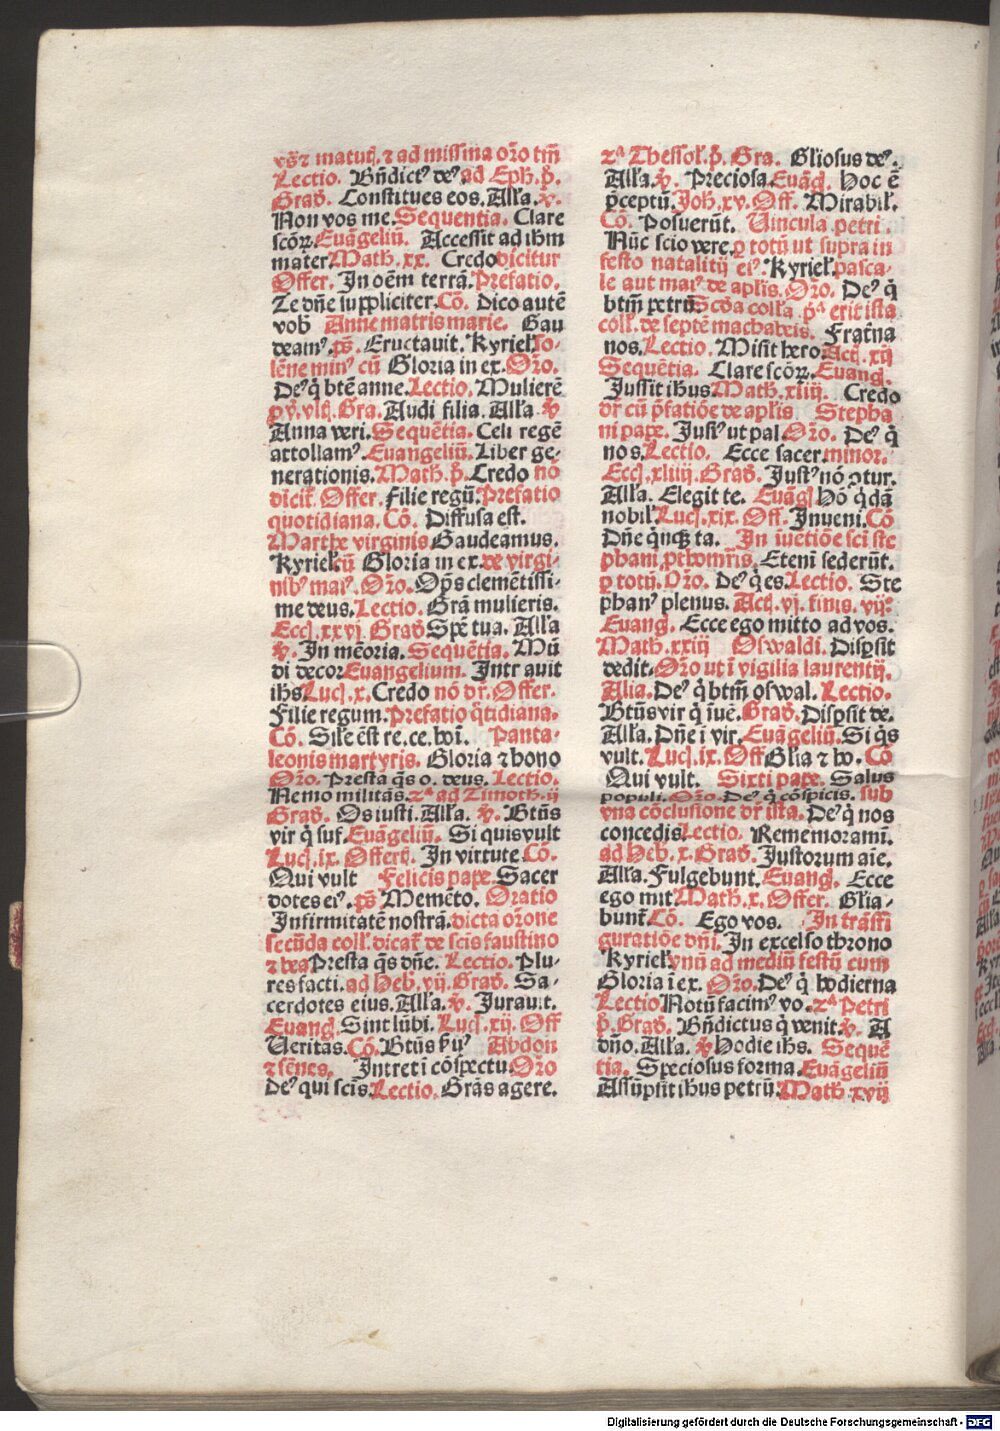 vꝫ̄ ⁊ matuꝗ̃. ⁊ ad missina or̄o tm̄
Lectio. Bn̄dictꝰ deꝰ. ad Eph. p̄.
Grad̕. Constitues eos. All̕a. ℣.
Non vos me. Sequentia. Clare
sc̄oꝝ. Euāgeliū. Accessit ad ihm
mater Math. xx. Credo dicitur
Offer. In oēm terrā. Prefatio.
Te dn̄e suppliciter. Cō. Dico autē
vob̕ Anne matris marie. Gau
deamꝰ. pš. Eructauit. Kyriel̕ so-
lēne minꝰ cū Gloria in ex. Or̄o.
Deꝰ q̇ btē anne. Lectio. Mulierē
ꝓv̄. vltị. Gra. Audi filia. All̕a ℣
Anna veri. Sequētia. Celi regē
attollamꝰ. Euangeliū. Liber ge-
nerationis. Math. p̄. Credo nō
dicit̕. Offer. Filie regū. Prefatio
quotidiana. Cō. Diffusa est.
Marthe virginis Gaudeamus.
Kyriel̕ cū Gloria in ex. de virgi-
nibꝰ maiꝰ. Or̄o. Op̄s clemētissi-
me deus. Lectio. Grā mulieris.
Eccị. xxvj Grad̕ Spē tua. All̕a
℣. In mēoria. Sequētia. Mū
di decor Euangelium. Intrauit
ih̄s Lucị. x. Credo nō dr̄. Offer.
Filie regum. Prefatio q̇tidiana.
Cō. Sil̕e ēst re. ce. hoī. Panta-
leonis martyris. Gloria ⁊ hono
Or̄o. Presta q̄s o. deus. Lectio.
Nemo militās. 2ª ad Timoth. ij
Grad̕. Os iusti. All̕a. ℣. Btūs
vir q̇ suf. Euāgeliū. Si quis vult
Lucị. ix. Offert̕. In virtute Cō.
Qui vult Felicis pape. Sacer
dotes eiꝰ. pš Memēto. Oratio
Infirmitatē nostrā. dicta or̄one
secūda coll̕. dicat̕ de scis faustino
⁊ bea Presta q̄s dn̄e. Lectio. Plu-
res facti. ad Heb. vij. Grad̕. Sa-
cerdotes eius. All̕a. ℣. Jurauit.
Euang̕. Sint lūbi. Lucị. xij. Off
Veritas. Cō. Btūs ẜuꝰ Abdon
⁊ sēnes. Intret ī cōspectu Or̄o
Deꝰ qui scīs. Lectio. Grās agere.
2ª Thessol̕. p̄. Gra. Gl̄iosus deꝰ.
All̕a. ℣. Preciosa. Euāg̕. Hoc ē
p̄ceptū. Joh. xv. Off. Mirabil̕.
Cō. Posuerūt. Vincula petri.
Nūc scio vere. ꝑ totū ut supra in
festo natalitij eiꝰ. Kyriel̕. pasca-
le aut maiꝰ de apl̄is. Or̄o. Deꝰ q̇
btm̄ petrū Scōa coll̕a pª erit ista
coll̕. de septē machabeis. Frat̄na
nos. Lectio. Misit hero. Actị. xij
Sequētia. Clare scōꝝ. Euang̕.
Jussit ihus Math. xliij. Credo
dr̄ cū p̄fatiōe de apl̄is Stepha
ni pape. Justꝰ ut pal. Or̄o. Deꝰ q̇
nos. Lectio. Ecce sacer minor.
Eccị. xliiij. Grad̕. Justꝰ nō ɔtur.
All̕a. Elegit te. Euāg̕ Hō q̇dā
nobil̕. Lucị. xix. Off. Inueni. Cō
Dn̄e q̇nqꝫ ta. In iuētiōe sci ste
phani ꝓthom̄ris. Eteni sederūt.
ꝑ totū. Or̄o. Deꝰ q̇ es. Lectio. Ste
phanꝰ plenus. Actị. vj. finis. vijꝰ.
Euang̕. Ecce ego mitto ad vos.
Math. xxiij Oswaldi. Disꝑsit
dedit. Or̄o ut ī vigilia laurentij.
Alia. Deꝰ q̇ btm̄ oswal. Lectio.
Btūs vir q̇ īuē. Grad̕. Disꝑsit de.
All̕a. Dn̄e ī vir. Euāgeliū. Si q̇s
vult. Lucị. ix. Off Gl̄ia ⁊ ho. Cō
Qui vult. Sixti pape. Salus
populi. Or̄o. Deꝰ q̇ cōspicis. sub
vna cōclusione dr̄ ista. Deꝰ q̇ nos
concedis Lectio. Rememoramī.
ad Heb. x. Grad̕. Justorum aīe.
All̕a. Fulgebunt. Euang̕. Ecce
ego mit. Math. x. Offer. Gl̄ia-
bunt̕. Cō. Ego vos. In trāsfi
guratiōe dn̄i. In excelso throno
Kyriel̕. ynū ad mediū festū cum
Gloria ī ex. Or̄o. Deꝰ q̇ hodierna
Lectio Notū facimꝰ vo. 2ª Petri
p̄. Grad̕. Bn̄dictus q̇ venit. ℣. A
dn̄o. All̕a. ℣ Hodie ihs. Sequē
tia. Speciosus forma. Euāgeliū
Assūpsit ihus petrū. Math xvij
Digitalisierung gefördert durch die Deutsche Forschungsgemeinschaft - DFG